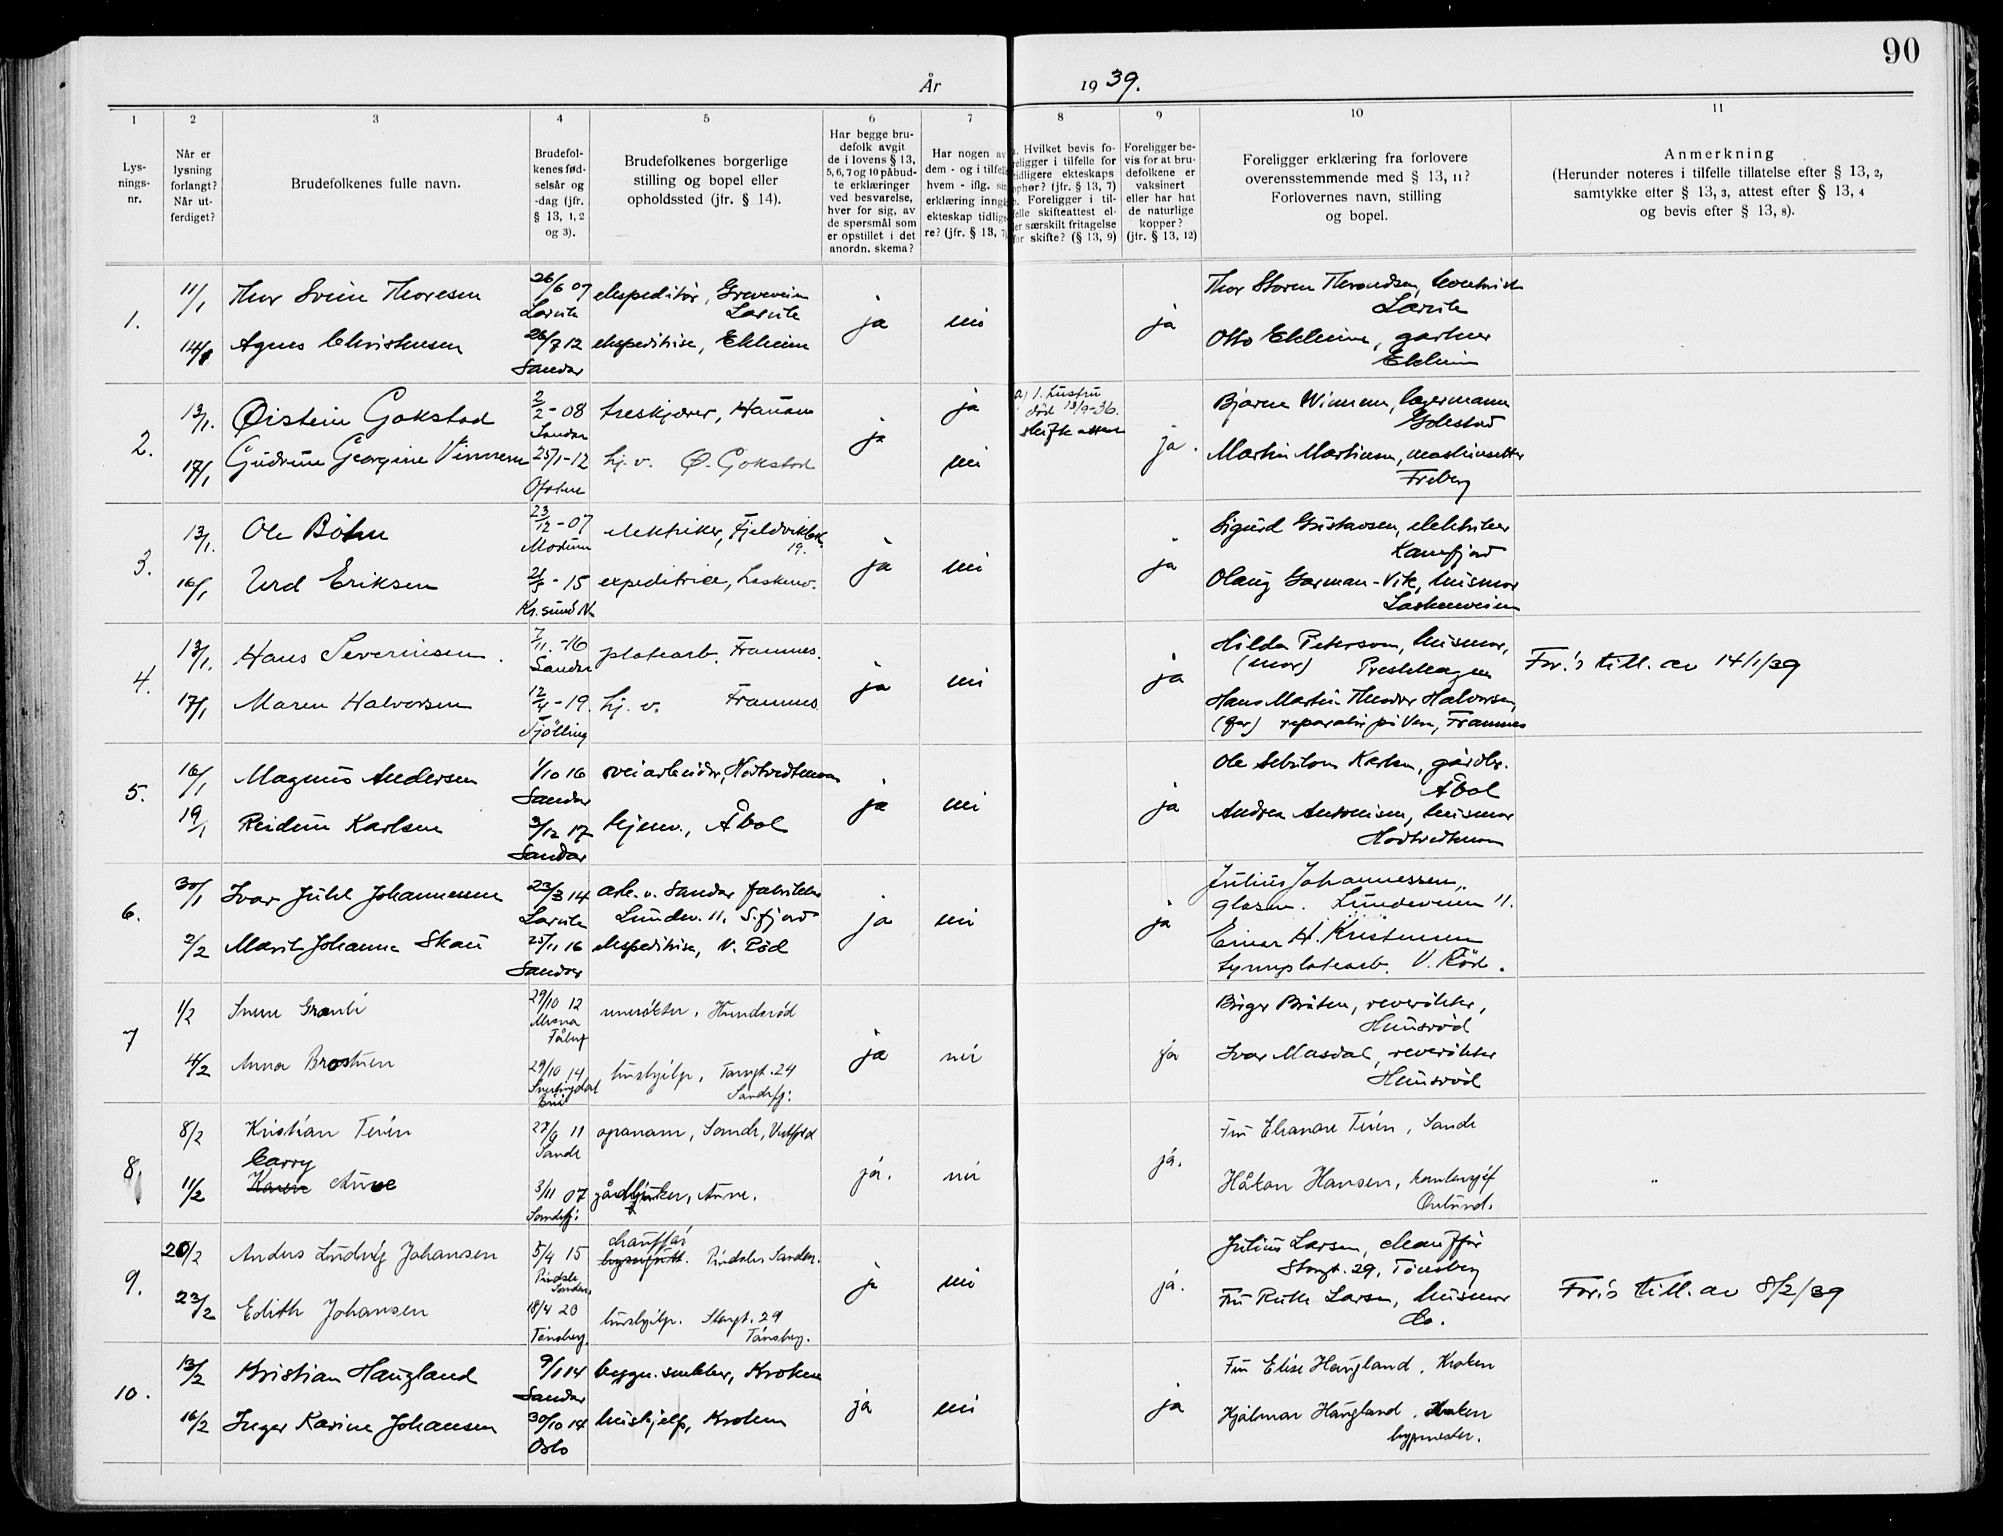 90
År 1939.
1 2 3 4 5 6 7 8 9 10 11
Lysnings-nr.
Når er lysning forlangt? Når utferdiget?
Brudefolkenes fulle navn.
Brudefolkenes fødselsår og -dag (jfr. § 13, 1, 2 og 3).
Brudefolkenes borgerlige stilling og bopel eller opholdssted (jfr. § 14).
Har begge brudefolk avgit de i lovens § 13, 5, 6, 7 og 10 påbudte erklæringer ved besvarelse, hver for sig, av de spørsmål som er opstillet i det anordn. skema?
Har nogen av dem - og i tilfelle hvem - iflg. sin erklæring inngå ekteskap tidligere? (jfr. § 13, 7)
Hvilket bevis foreligger i tilfelle for tidligere ekteskaps ophør? (jfr. § 13, 7)
Foreligger i tilfelle skifteattest eller særskilt fritagelse for skifte? (§ 13, 9)
Foreligger bevis for at brudefolkene er vaksinert eller har hat de naturlige kopper? (jfr. § 13, 12)
Foreligger erklæring fra forlovere overensstemmende med § 13, 11? Forlovernes navn, stilling og bopel.
Anmerkning
(Herunder noteres i tilfelle tillatelse efter § 13, 2, samtykke efter § 13, 3, attest efter § 13, 4 og bevis efter § 13, 8).
1.
11/1 Thor Svein Thoresen 26/6 07 Larvik ekspeditør, Greveveien Larvik ja nei ja
Larvik
14/1 Agnes Christensen 26/7 12 Sandar ekspeditrise, Ekheim
Otto Ekheim, gartner
Ekheim
2.
13/1. Øistein Gokstad 2/2 - 08 Sandar treskjærer, Hauan ja ja
a) 1. hustru død 13/9-36. skifteattest
ja.
Bjarne Winnem, lagermann
Gokstad
17/1 Gudrun Georgine Vinnem 25/1-12 Ofoten hj. v. Ø. Gokstad nei
Martin Martinsen,
Freberg
3.
13/1. Ole Bøhn 23/12 - 07 Modum elektriker, Fjeldvikbk. 19. ja nei ja
Sigurd Gustavsen, elektriker
Kamfjord
16/1 Urd Eriksen 21/3 - 15 Kr.sund N. expeditrice, Laskenv.
Olaug Garman-Vik, husmor
Laskenveien
4.
13/1. Hans Severinsen. 7/11. -16 Sandar platearb. Framnes. ja nei ja
Hilda Peterson, husmor,
(mor) Presthagen
For.'s till. av 14/1/39
17/1 Maren Halvorsen 12/4 - 19. Tjølling hj. v. Framnes
Hans Martin Theodor Halvorsen,
(far) Framnes
5.
16/1 Magnus Andersen 1/10 16 Sandar veiarbeider, ja nei ja
Ole Karlsen, gårdbr.
Åbol
19/1 Reidun Karlsen 3/12 17 Sandar hjemv., Åbol
Andrea Antonisen, husmor
6.
30/1 Ivar Juhl Johannessen 23/3 14 Larvik arb. v. Sandar fabrikker Lundev. 11, S.fjord ja nei ja
Julius Johannessen,
Lundeveien 11.
2/2 Marit Johanne Skau 25/11 16 Sandar ekspeditrise, V. Rød
Einar H. Kristensen
V. Rød.
7
1/2 29/10 12 Mesna Fåberg ja nei ja
Birger Bråten, reverøkter,
Hunsrød
4/2 Anna 29/10 14 hushjelp, Torvgt. 24 Sandefj.
Ivar Masdal, reverøkter
Hunsrød
8,
8/2 Kristian Teien 28/9 11 Sande Sande, Vestfold ja. nei ja.
Fru Eleanore Teien, Sande
11/2 Carry Karen Aune 3/11 07 Sandefj.
Håkon Hansen, kontorsjef
9.
20/2 Anders Ludvig Johansen 5/4 15 Pindsle Sandar chauffør Pindsle, Sandar. ja nei ja.
Julius Larsen, chauffør
Storgt. 29, Tønsberg
For.'s till. av 8/2/39
23/2 Edith Johansen 18/4 20 Tønsberg. hushjelp. Storgt. 29 Tønsberg.
Fru Ruth Larsen, husmor
Do.
10.
13/2 Kristian Haugland 9/1 14 Sandar byggn. snekker, Kroken ja nei ja
Fru Elise Haugland, Kroken
16/2 Inger Karine Johansen 30/10 14 Oslo hushjelp, Kroken
Hjalmar Haugland, Kroken
byggmester.